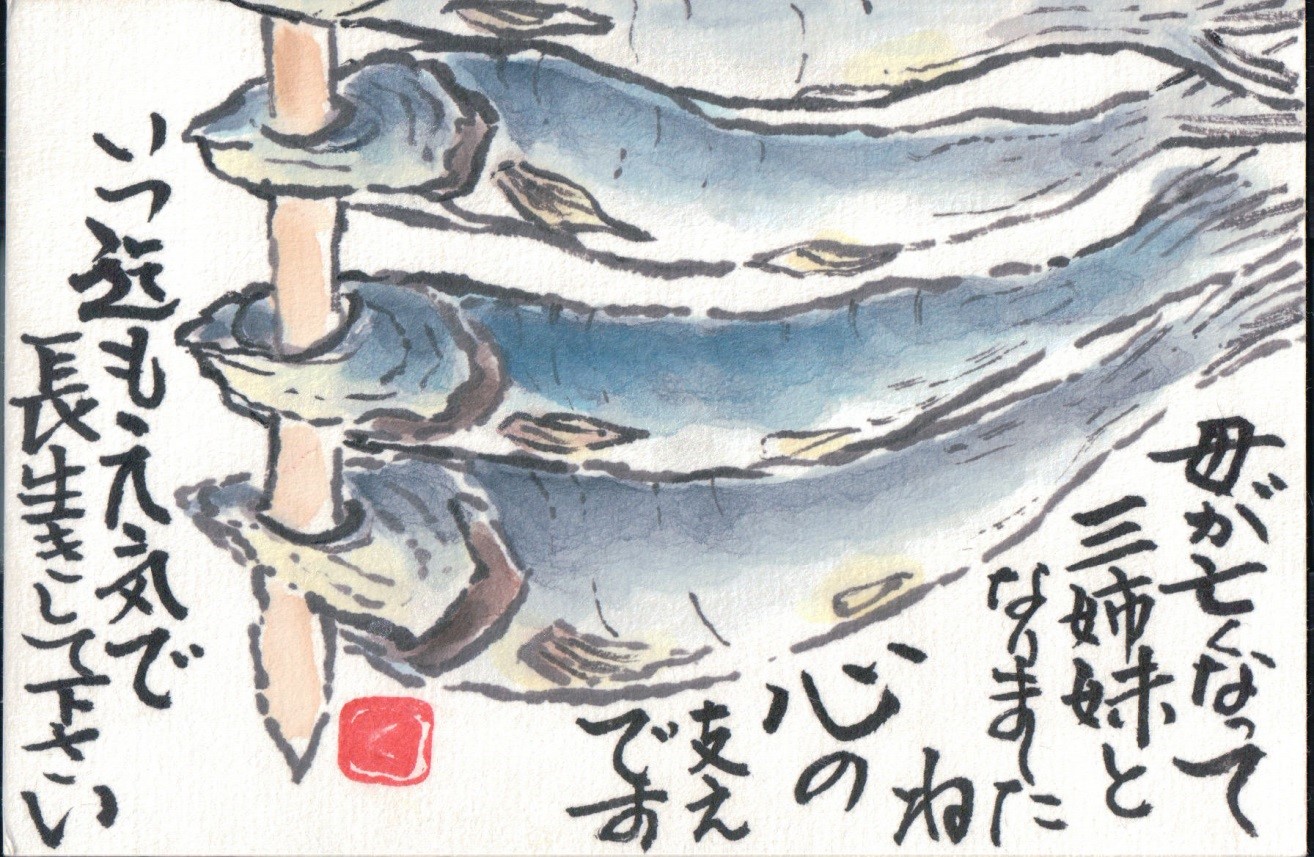 母が亡くなって
三姉妹と
なりました
ね
心の
支え
です
いつ迄も元気で
長生きして下さい
く